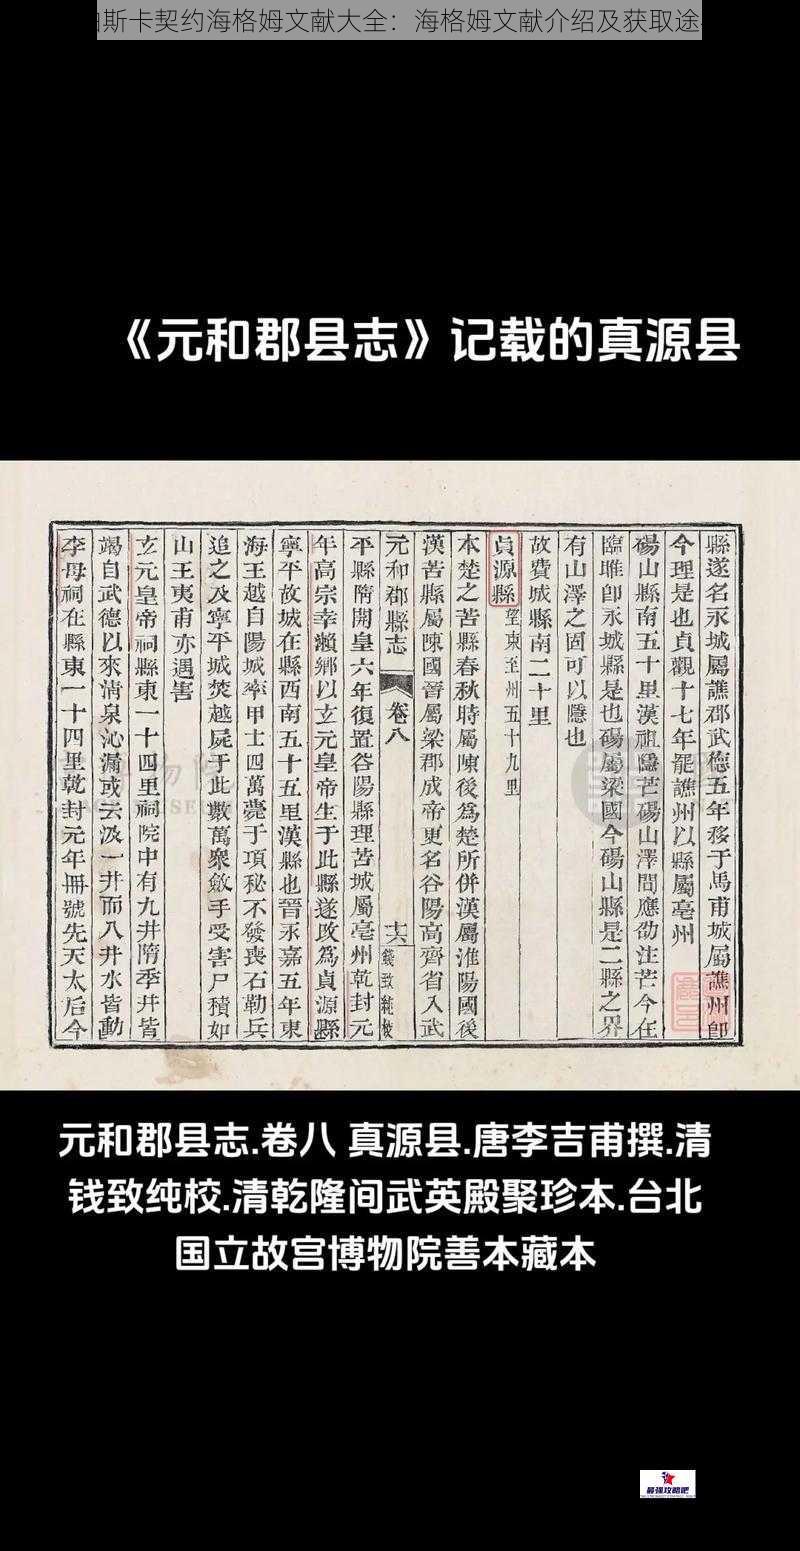 斯卡契约海格姆文献大全：海格姆文献介绍及获取途
《元和郡县志》记载的真源县
縣遂名永城屬譙郡武德五年移于馬甫城屬譙州即
今理是也貞觀十七年罷譙州以縣屬亳州
碭山縣南五十里漢祖隱芒碭山澤間應劭注芒今在
臨睢即永城縣是也碭屬梁國今碭山縣是二縣之界
有山澤之固可以隱也
故費城縣南二十里
貞源縣望東至州五十九里
本楚之苦縣春秋時屬陳後爲楚所併漢屬淮陽國後
漢苦縣屬陳國晉屬梁郡成帝更名谷陽高齊省入武
元和郡縣志 卷八 十六 錢致純校
平縣隋開皇六年復置谷陽縣理苦城屬亳州乾封元
年高宗幸瀨鄉以玄元皇帝生于此縣遂改爲貞源縣
寧平故城在縣西南五十五里漢縣也晉永嘉五年東
海王越自陽城率甲士四萬薨于項秘不發喪石勒兵
追之及寧平城焚越屍于此數萬衆斂手受害尸積如
山王夷甫亦遇害
玄元皇帝祠縣東一十四里祠院中有九井隋季井皆
竭自武德以來清泉沁漏或云汲一井而八井水皆動
李母祠在縣東一十四里乾封元年冊號先天太后今
元和郡县志.卷八 真源县.唐李吉甫撰.清
钱致纯校.清乾隆间武英殿聚珍本.台北
国立故宫博物院善本藏本
最强攻略吧